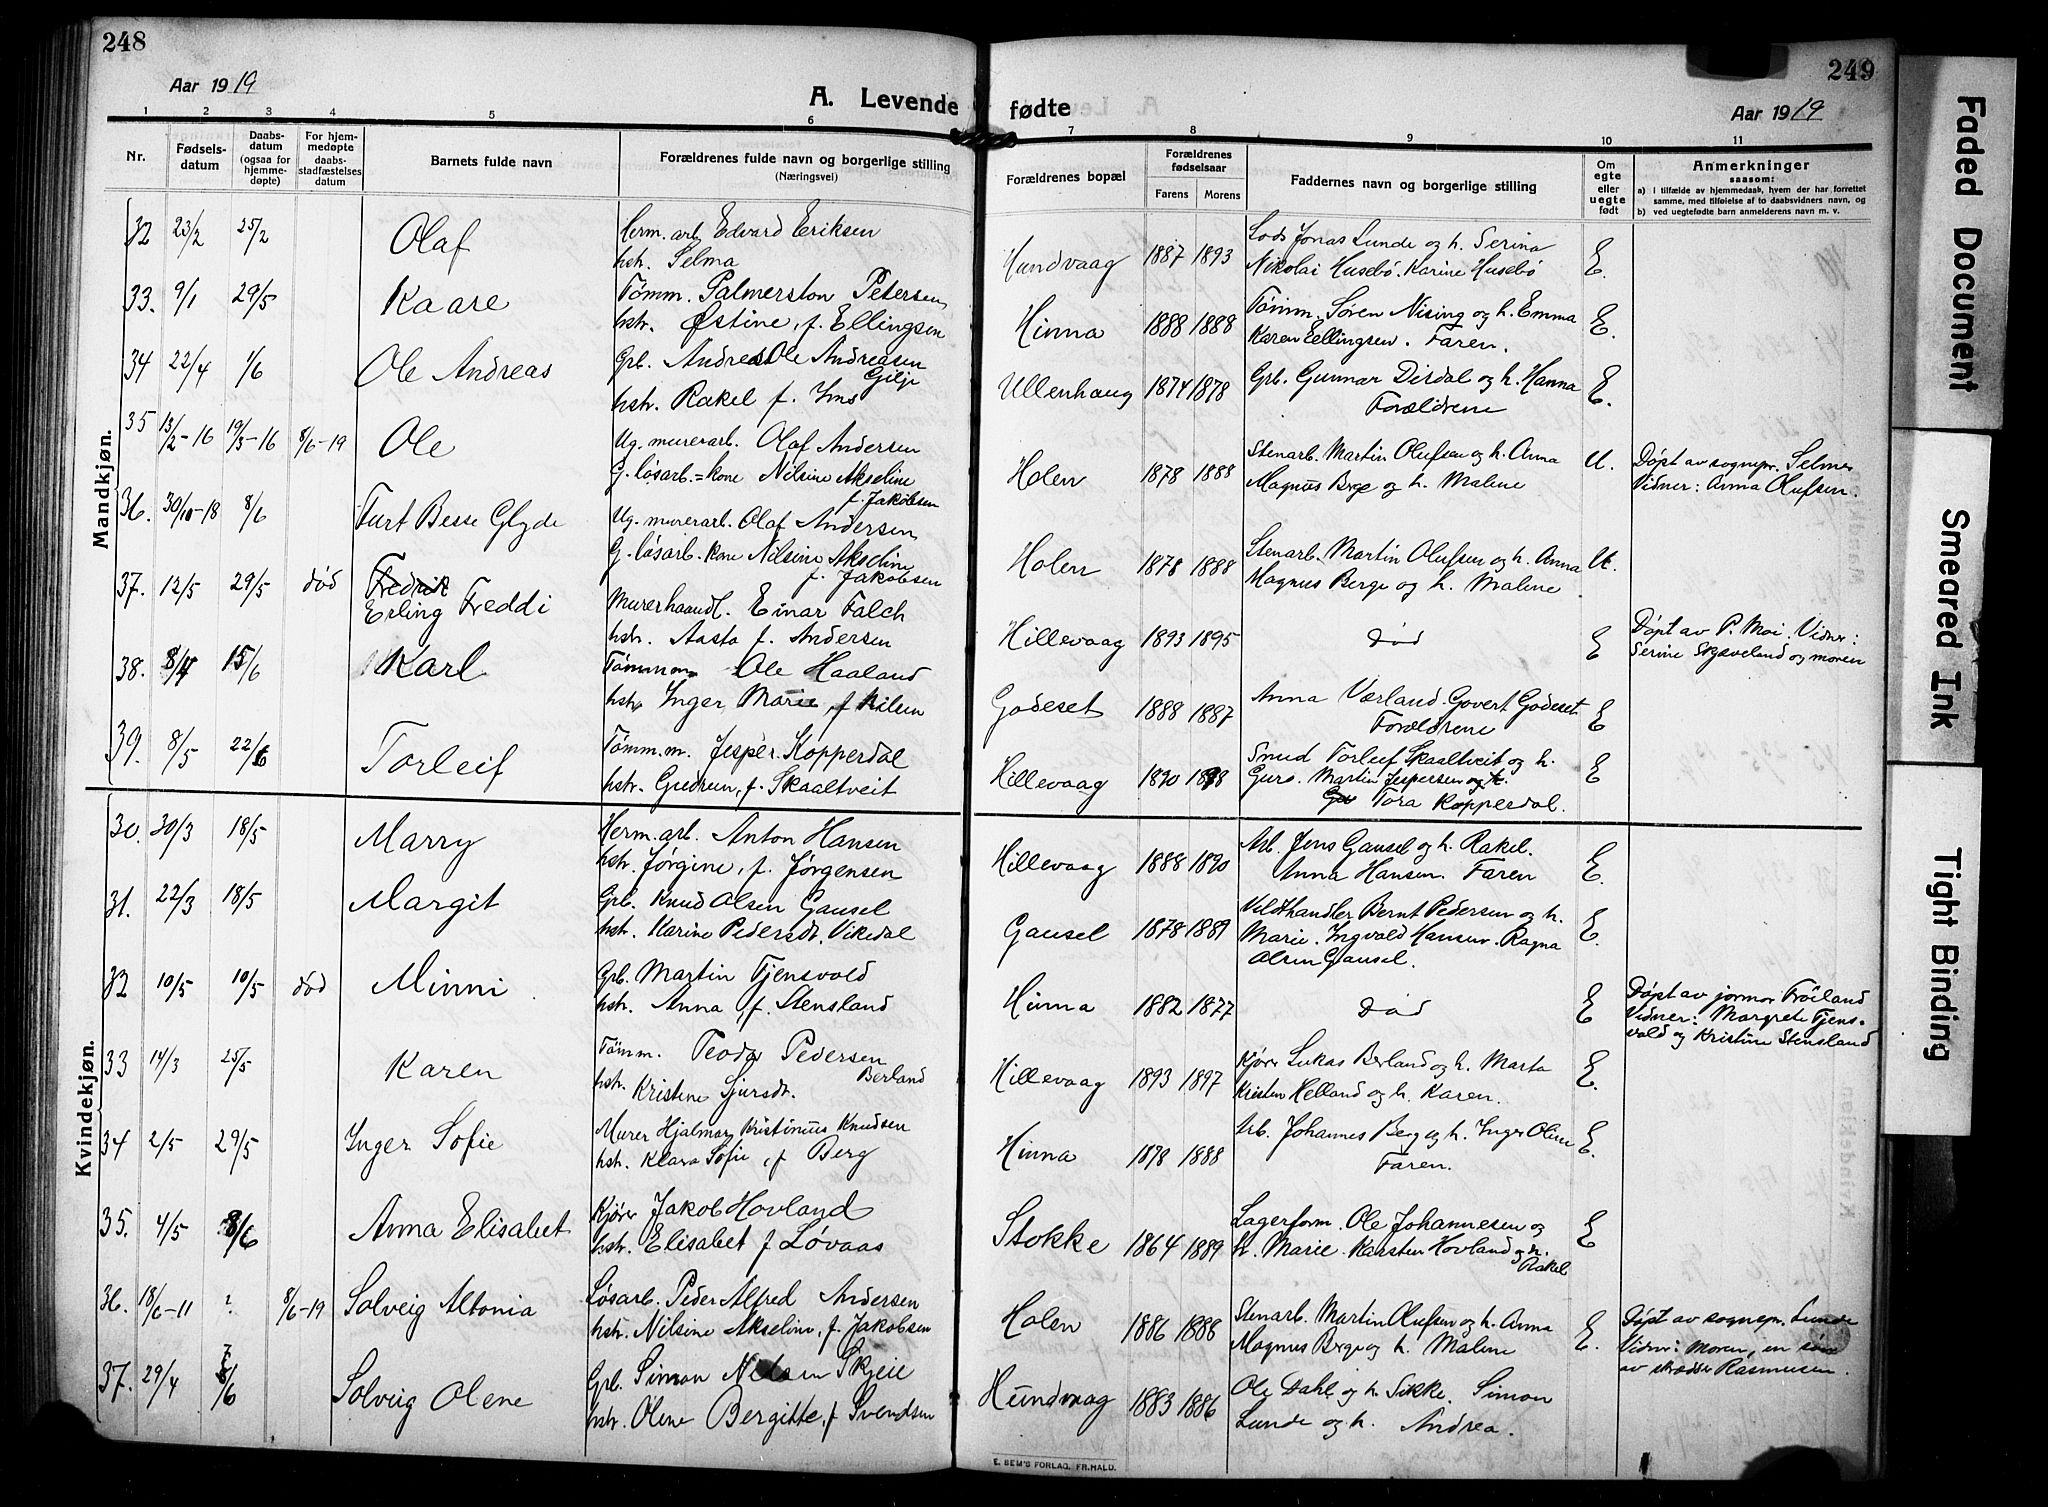 248
Aar 1919
A. Levende
1 2 3 4 5 6
Nr.
Fødsels-
datum
Daabs-
datum
(ogsaa for
hjemme-
døpte)
For hjem-
medøpte
daabs-
stadfæstelses
datum
Barnets fulde navn
Forældrenes fulde navn og borgerlige stilling
(Næringsvei)
Mandkjøn.
32 23/2 25/2 Olaf Herm. arb. Edvard Eriksen
hstr. Selma
33. 9/1 29/5 Kaare Tömm. Palmerston Petersen
hstr. Østine, f. Ellingsen
34 22/4 1/6 Ole Andreas Grb. Andreas Ole Andreasen
Gilje
hstr. Rakel f. Ims
35 13/2-16 19/3-16 8/6-19 Ole Ug. murerarb. Olaf Andersen
G. løsarb.=kone Nilsine Akseline
f. Jakobsen
36. 30/10-18 8/6 Turt Besse Glyde Ug. murerarb. Olaf Andersen
G. løsarb. kone Nilsine Akseline
f. Jakobsen
37. 12/5 29/5 död Fredrik
Erling Freddi Murerhaandl. Einar Falch
hstr. Aasta f. Andersen
38. 8/4 15/6 Karl Tömmerm. Ole Haaland
hstr. Inger Marie, f. Nilsen
39. 8/5 22/6 Torleif Tömm.m. Jesper Kopperdal
hstr. Gudrun, f. Skaaltveit
Kvindekjøn.
30. 30/3 18/5 Marry Herm. arb. Anton Hansen
hstr. Jørgine, f. Jørgensen
31. 22/3 18/5 Margit Grb. Knud Olsen Gausel
hstr. Karine Pedersdt. Vikedal
32 10/5 10/5 död Minni Grb. Martin Tjensvold
hstr. Anna, f. Stensland
33 14/3 25/5 Karen Tömm. Teodor Pedersen
Berland
hstr. Kristine Sjursdt.
34 2/5 29/5 Inger Sofie Murer Hjalmar Kristinius Knudsen
hstr. Klara Sofie, f. Berg
35. 4/5 8/6 Anna Elisabet Kjører Jakob Hovland
hstr. Elisabet f. Løvaas
36. 18/6-11 ? 8/6-19 Solveig Altonia Løsarb. Peder Alfred Andersen
hstr. Nilsine Akseline, f. Jakobsen
37. 29/4 8/6 Solveig Olene Grb. Simon Nilsen Skjeie
hstr. Olene Bergitte, f. Svendsen
249
fødte
Aar 1919
7 8 9 10 11
Forældrenes bopæl
Forældrenes
fødselsaar
Farens Morens
Faddernes navn og borgerlige stilling
Om
egte
eller
uegte
født
Anmerkninger
saasom:
a) i tilfælde av hjemmedaab, hvem der har forrettet
samme, med tilføielse av to daabsvidners navn, og
b) ved uegtefødte barn anmelderens navn m. v.
Hundvaag 1887 1893 Lods Jonas Lunde og h. Serina
Nikolai Husebö. Karine Husebö E.
Hinna 1888 1888 Tømm. Søren Nising og h. Emma
Karen Ellingsen. Faren. E.
Ullenhaug 1874 1878 Grb. Gunnar Dirdal og h. Hanna
Forældrene E.
Holen 1878 1888 Stenarb. Martin Olufsen og h. Anna
Magnus Berge og h. Malene U. Døpt av sognepr. Selmer
Vidner: Anna Olufsen.
Holen 1878 1888 Stenarb. Martin Olufsen og h. Anna
Magnus Berge og h. Malene U.
Hillevaag 1893 1895 Død E Døpt av P. Moi. Vidner:
Serine Skjæveland og moren
Godeset 1888 1887 Anna Værland. Govert Godeset
Forældrene E
Hillevaag 1890 1898 Smed Torleif Skaaltveit og h.
Guro. Martin Jespersen og h.
Tora Kopperdal. E
Hillevaag 1888 1890 Arb. Jens Gausel og h. Rakel.
Anna Hansen. Faren E.
Gausel 1878 1889 Vildthandler Bernt Pedersen og h.
Marie. Ingvald Hansen. Ragna
Olsen Gausel. E.
Hinna 1882 1877 Død E Døpt av jormor Fröiland
Vidner: Margrete Tjens-
vold og Kristine Stensland
Hillevaag 1893 1897 Kjører Lukas Berland og h. Marta
Kristen Helland og h. Karen. E.
Hinna 1878 1888 Arb. Johannes Berg og h. Inger Oline
Faren. E.
Stokke 1864 1889 Lagerform. Ole Johannesen og
h. Marie. Karsten Hovland og h.
Rakel E
Holen 1886 1888 Stenarb. Martin Olufsen og h. Anna
Magnus Berge og h. Malene E. Døpt av sognepr. Lunde
Vidner: Moren, en søn
av skrædder Rasmussen.
Hundvaag 1883 1886 Ole Dahl og h. Sikke. Simon
Lunde og h. Andrea.
E. SEM'S FORLAG, FR.HALD.
Faded Document
Smeared Ink
Tight Binding